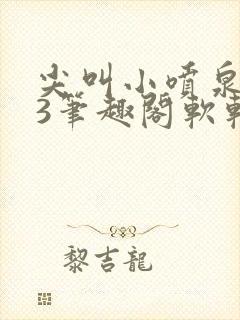 尖叫小噴泉
3筆趣閣軟
黎吉龍